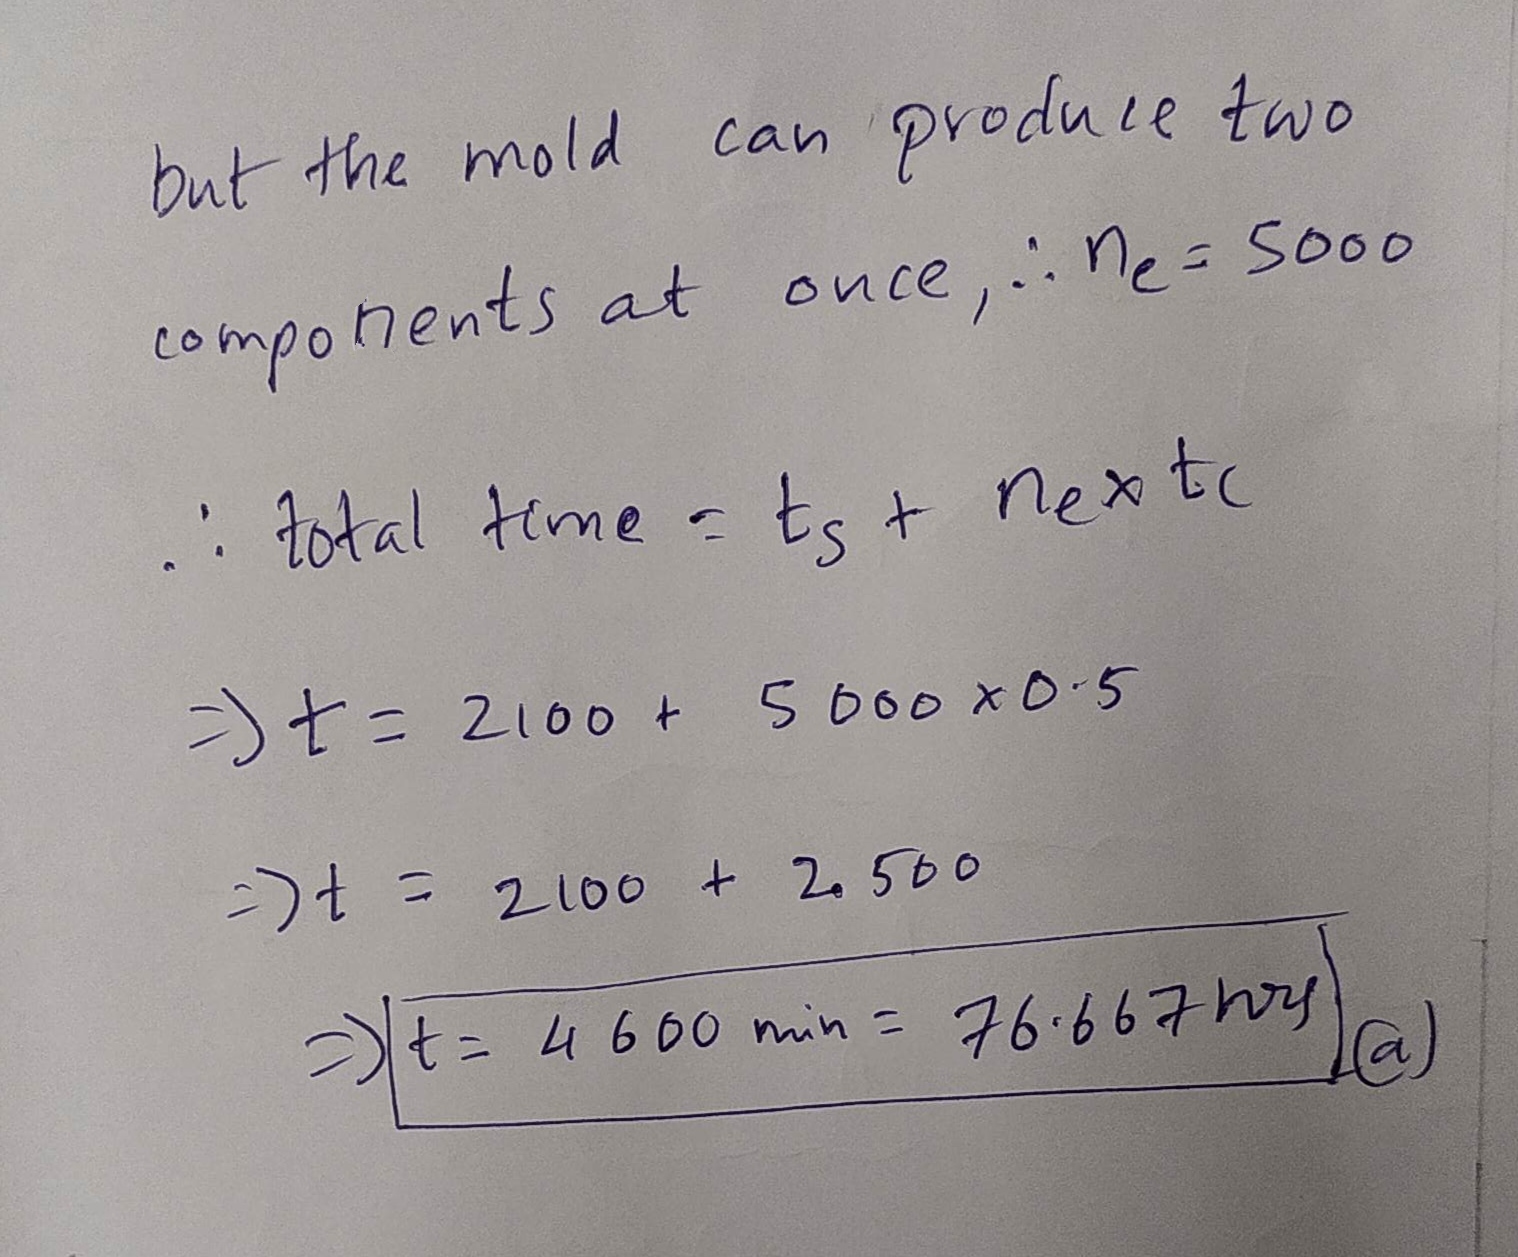 but the mold can produce two
components at once, ∴ ne = 5000
∴ total time = ts + ne x tc
=> t = 2100 + 5000 x 0.5
=> t = 2100 + 2.500
=> t = 4600 min = 76.667 hrs (a)